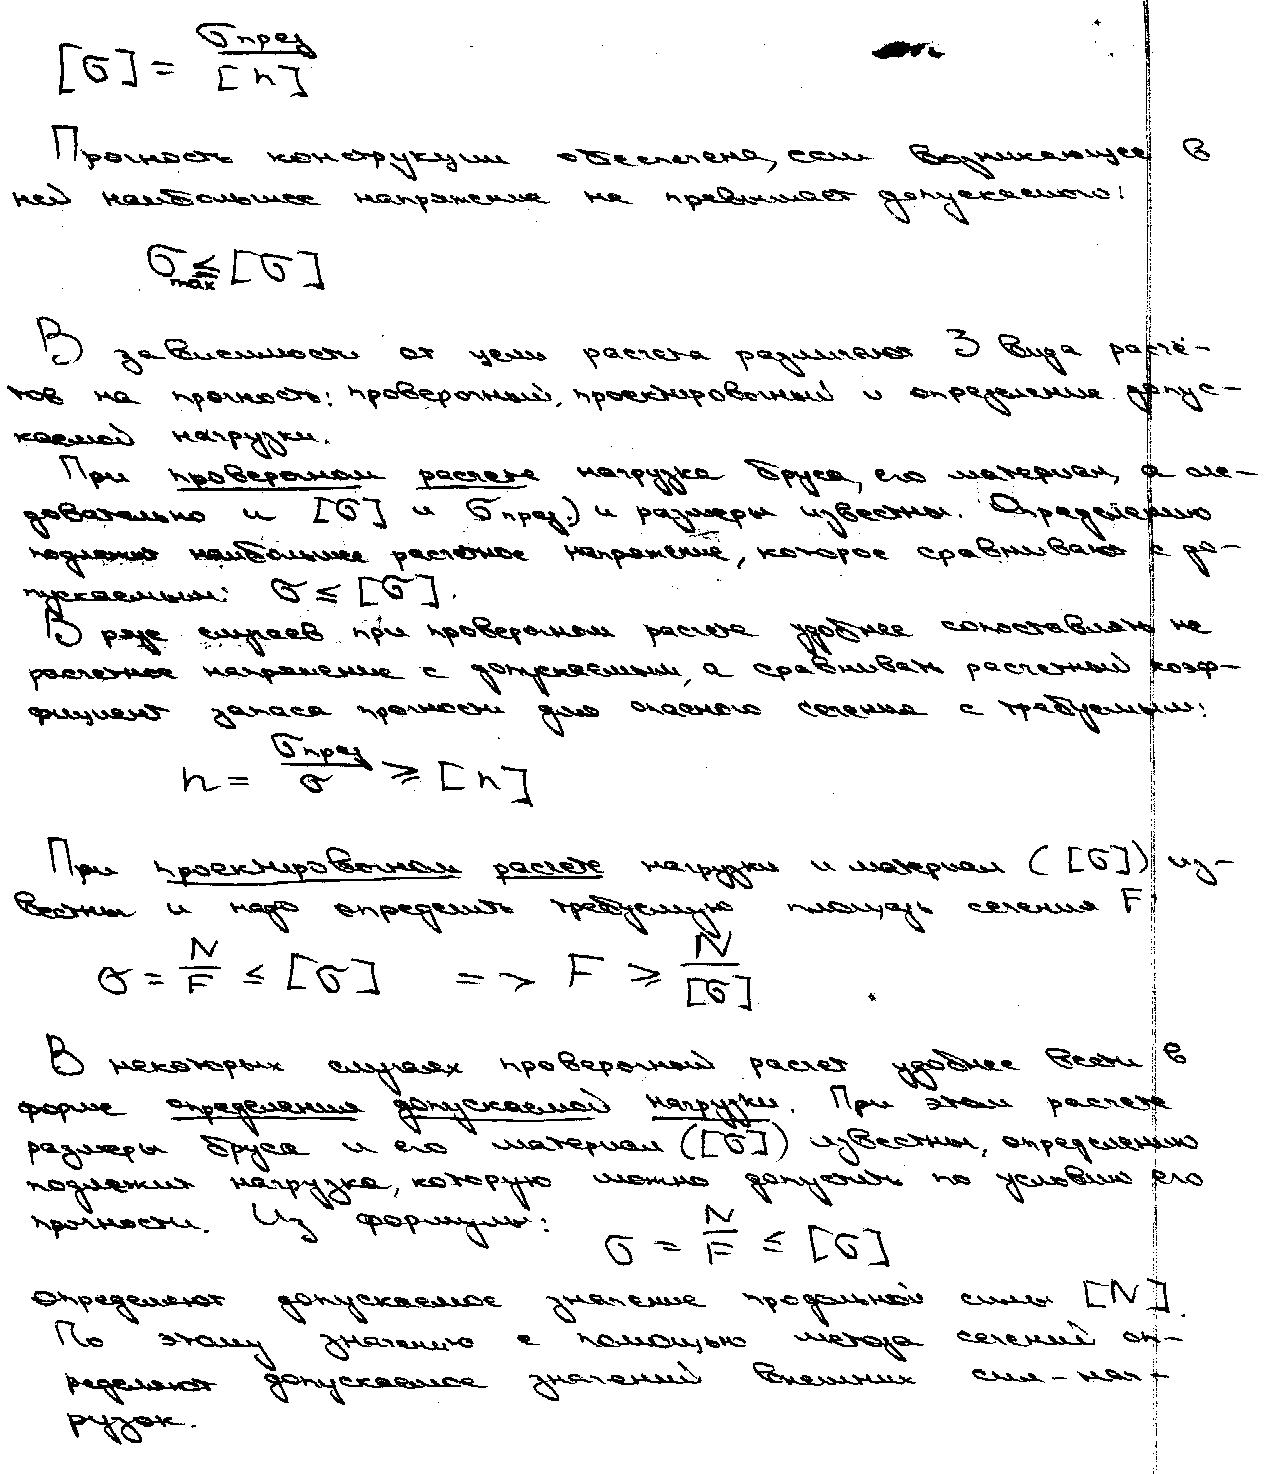 [σ] = σпред / [n]
Прочность конструкции обеспечена, если возникающее в
ней наибольшее напряжение не превышает допускаемого:
σmax ≤ [σ]
В зависимости от цели расчета различают 3 вида расчё-
тов на прочность: проверочный, проектировочный и определение допус-
каемой нагрузки.
При проверочном расчете нагрузка бруса, его материал, а сле-
довательно и [σ] и σпред.) и размеры известны. Определению
подлежит наибольшее расчетное напряжение, которое сравнивают с до-
пускаемым: σ ≤ [σ].
В ряде случаев при проверочном расчете удобнее сопоставлять не
расчетное напряжение с допускаемым, а сравнивать расчетный коэф-
фициент запаса прочности для опасного сечения с требуемым:
n = σпред / σ ≥ [n]
При проектировочном расчете нагрузки и материал ([σ]) из-
вестны и надо определить требуемую площадь сечения F:
σ = N / F ≤ [σ] => F ≥ N / [σ]
В некоторых случаях проверочный расчет удобнее вести в
форме определения допускаемой нагрузки. При этом расчете
размеры бруса и его материал ([σ]) известны, определению
подлежит нагрузка, которую можно допустить по условию его
прочности. Из формулы:
σ = N / F ≤ [σ]
определяют допускаемое значение продольной силы [N].
По этому значению с помощью метода сечений оп-
ределяют допускаемое значений внешних сил - наг-
рузок.